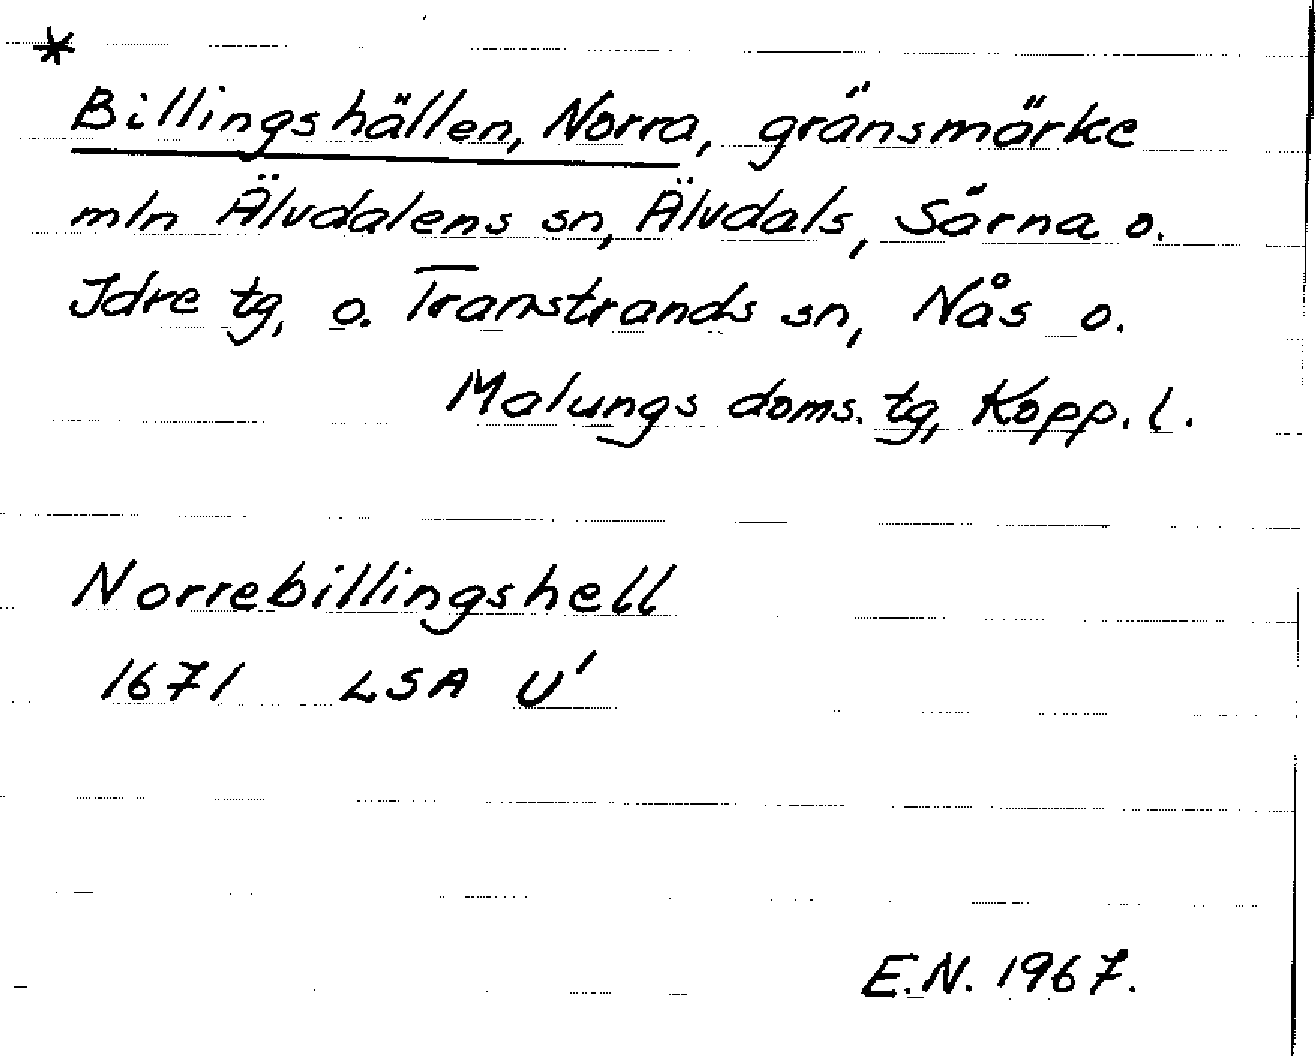 *
Billingshällen, Norra, gränsmärke
mln Älvdalens sn, Älvdals, Särna o.
Idre tg, o. Transtrands sn, Nås o.
Malungs doms. tg, Kopp. l.
Norrebillingshell
1671 LSA U'
E.N. 1967.